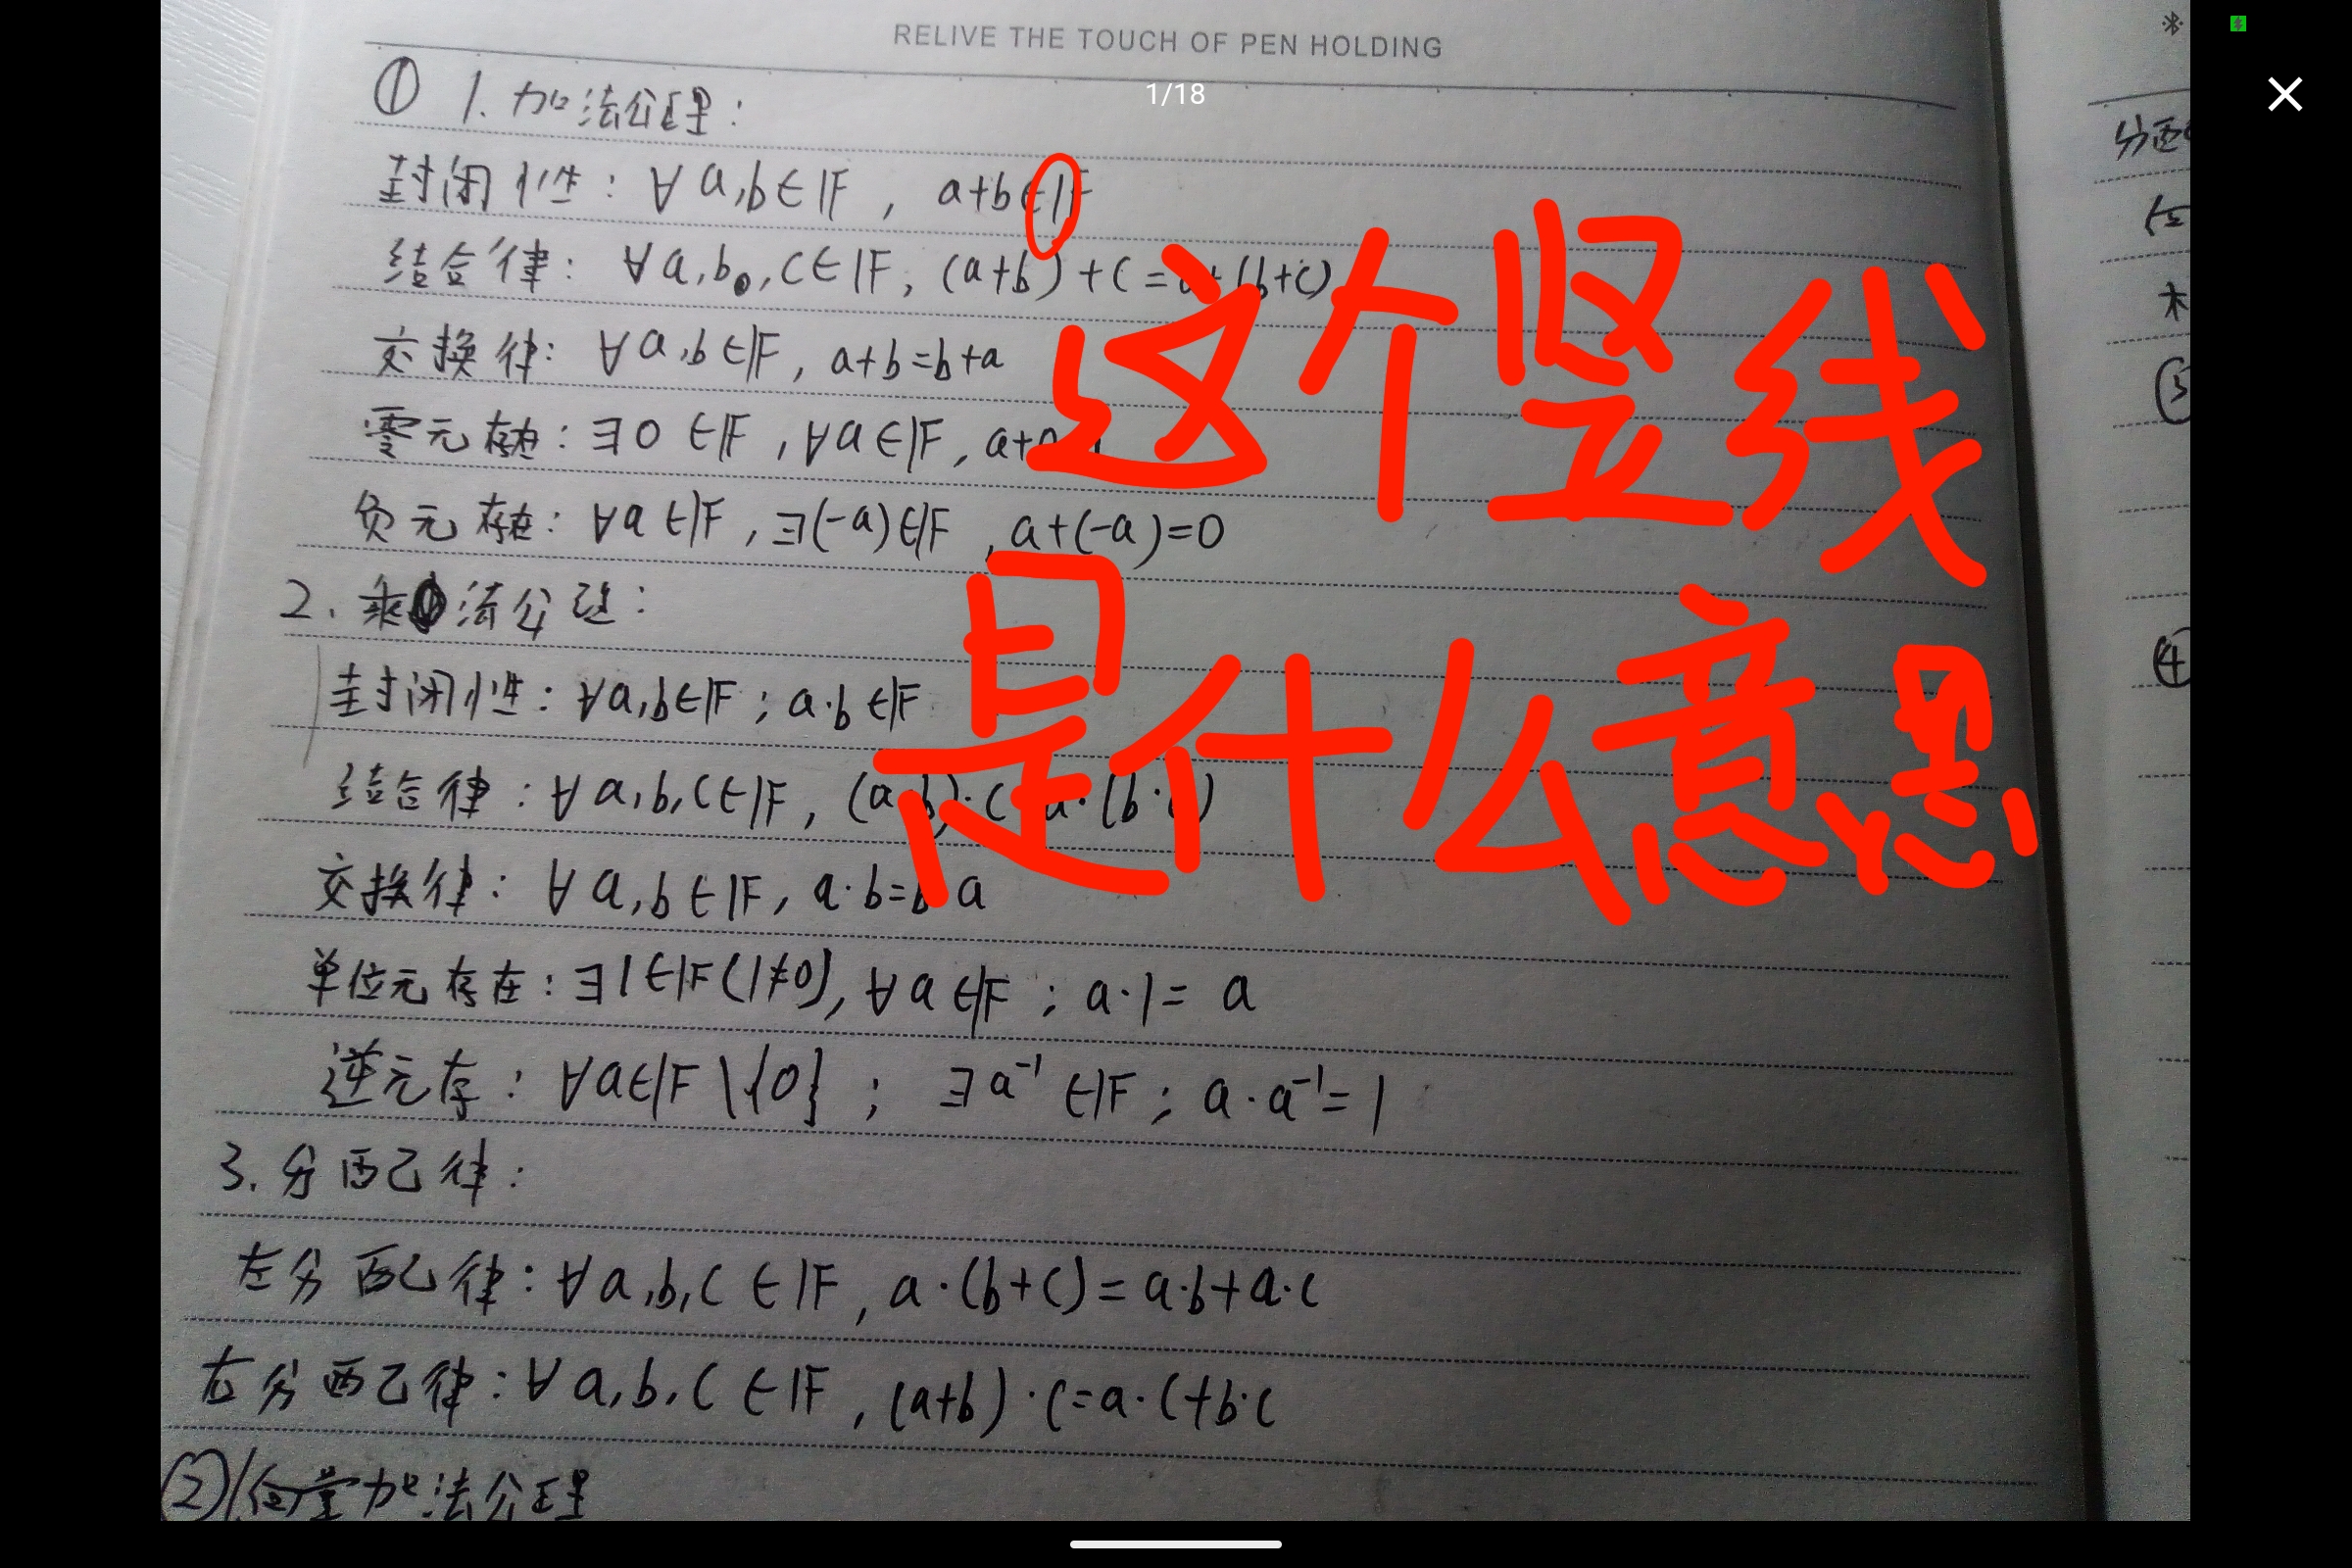 RELIVE THE TOUCH OF PEN HOLDING
1/18
① 1. 加法公理：
封闭性：∀a,b∈𝔽，a+b∈𝔽
结合律：∀a,b,c∈𝔽，(a+b)+c=a+(b+c)
交换律：∀a,b∈𝔽，a+b=b+a
零元存在：∃0∈𝔽，∀a∈𝔽，a+0
负元存在：∀a∈𝔽，∃(-a)∈𝔽，a+(-a)=0
2. 乘法公理：
封闭性：∀a,b∈𝔽；a·b∈𝔽
结合律：∀a,b,c∈𝔽，(a·b)·c=a·(b·c)
交换律：∀a,b∈𝔽，a·b=b·a
单位元存在：∃1∈𝔽(1≠0)，∀a∈𝔽；a·1=a
逆元存：∀a∈𝔽\{0}；∃a⁻¹∈𝔽；a·a⁻¹=1
3. 分配律：
左分配律：∀a,b,c∈𝔽，a·(b+c)=a·b+a·c
右分配律：∀a,b,c∈𝔽，(a+b)·c=a·c+b·c
② 向量加法公理
这个竖线
是什么意思
分配
③
④